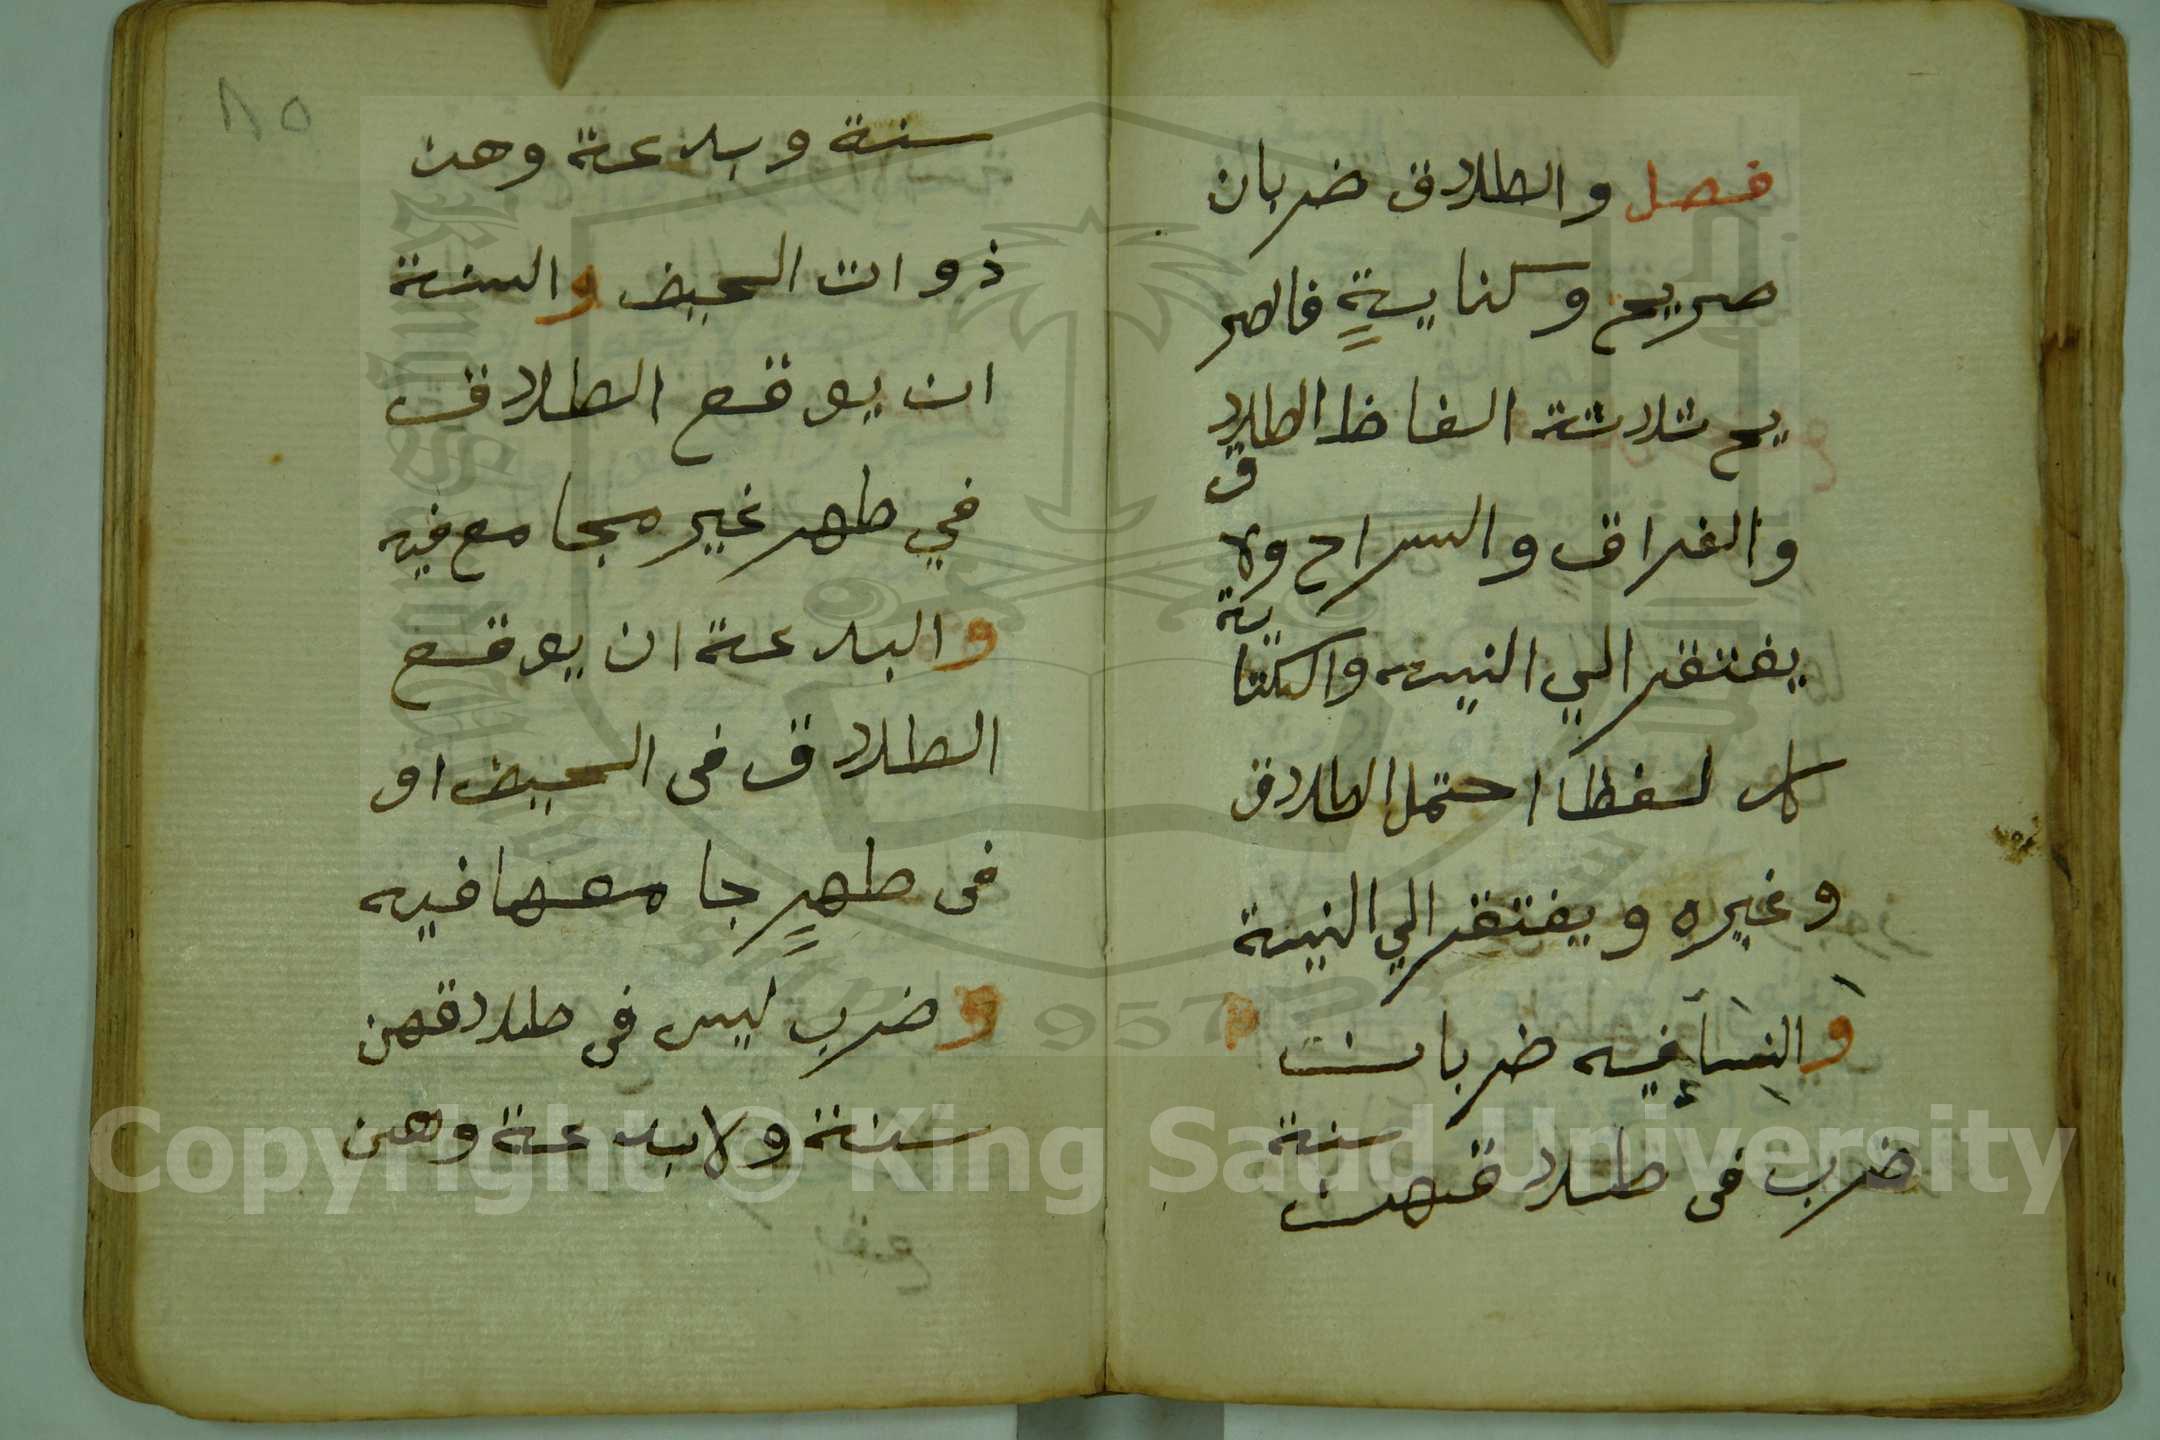 فصل والطلاق ضربان
صريح وكنايةٍ فالصر
يح ثلاثة الفاظ الطلاق
والفراق والسراح ولا
يفتقر الي النيه والكناية
كل لفظ احتمل الطلاق
وغيره ويفتقر الي النية
والنسآء فيه ضربان
ضرب في طلاقهن سنة
٨٥
سنة وبدعة وهن
ذوات الحيض والسنة
ان يوقع الطلاق
في طهر غير مجامع فيه
والبدعة ان يوقع
الطلاق فى الحيض او
فى طهرٍ جامعها فيه
وضرب ليس فى طلاقهن
سنة ولا بدعة وهن
Copyright © King Saud University
1957